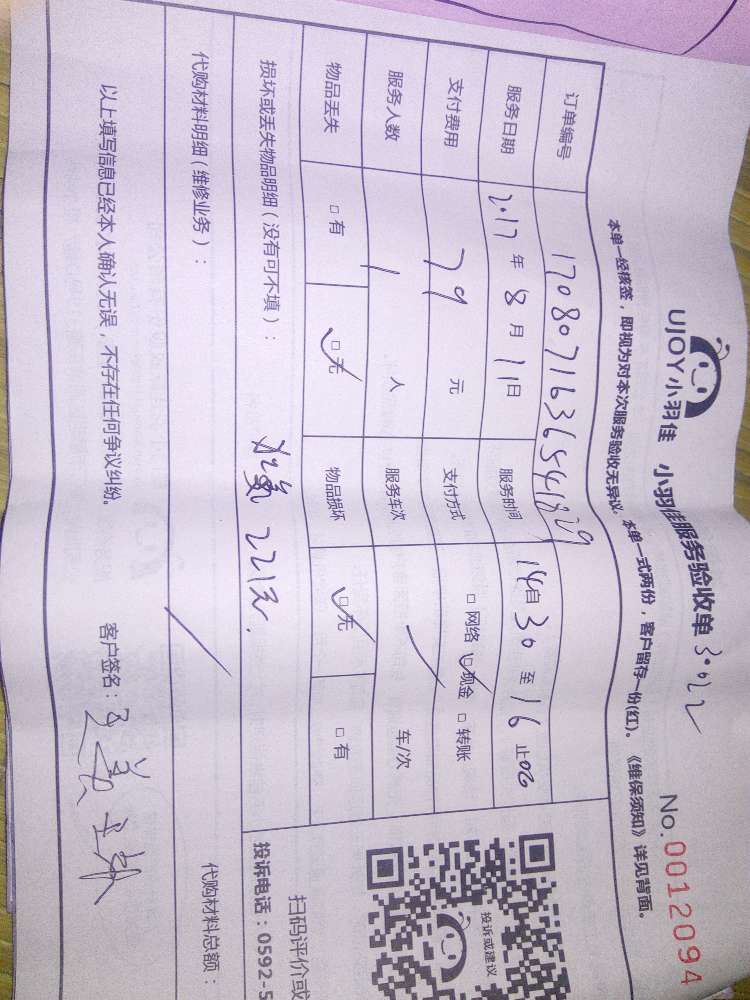 UJOY小羽佳 小羽佳服务验收单
No.0012094
本单一经核签，即视为对本次服务验收无异议。本单一式两份，客户留存一份(红)。《维保须知》详见背面。
订单编号 1708071636541829
服务日期 2017年8月11日 服务时间 14自30至16止06
支付费用 79元 支付方式 □网络 ☑现金 □转账
服务人数 1人 服务车次 / 车/次
物品丢失 □有 ☑无 物品损坏 ☑无 □有
损坏或丢失物品明细（没有可不填）：
加氟 221元.
代购材料明细（维修业务）： / 代购材料总额：
以上填写信息已经本人确认无误，不存在任何争议纠纷。 客户签名：
投诉或建议
扫码评价或
投诉电话：0592-5